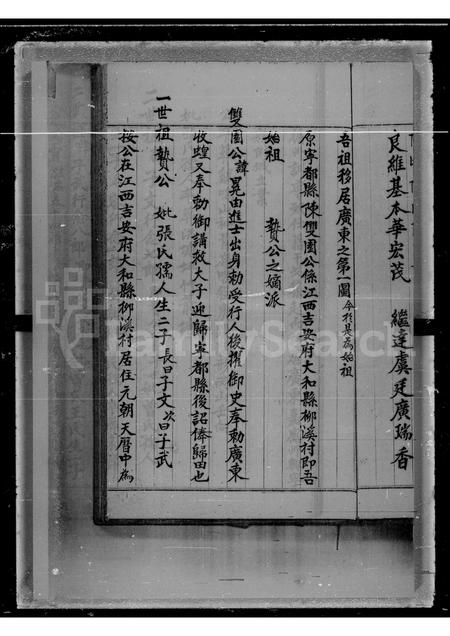 良維基本華宏茂 繼達虞廷廣瑞香
吾祖移居廣東之第一圖 今於是為始祖
原寧都縣陳雙園公係江西吉安府大和縣柳溪村即吾
始祖 贄公之嫡派
雙園公諱冕由進士出身勅受行人後擢御史奉勅廣東
收蝗又奉勅御講效大子迎歸寧都縣後詔俸歸田也
一世祖贄公 妣張氏孺人生二子長曰子文次曰子武
按公在江西吉安府大和縣柳溪村居住元朝天曆中為
FamilySearch